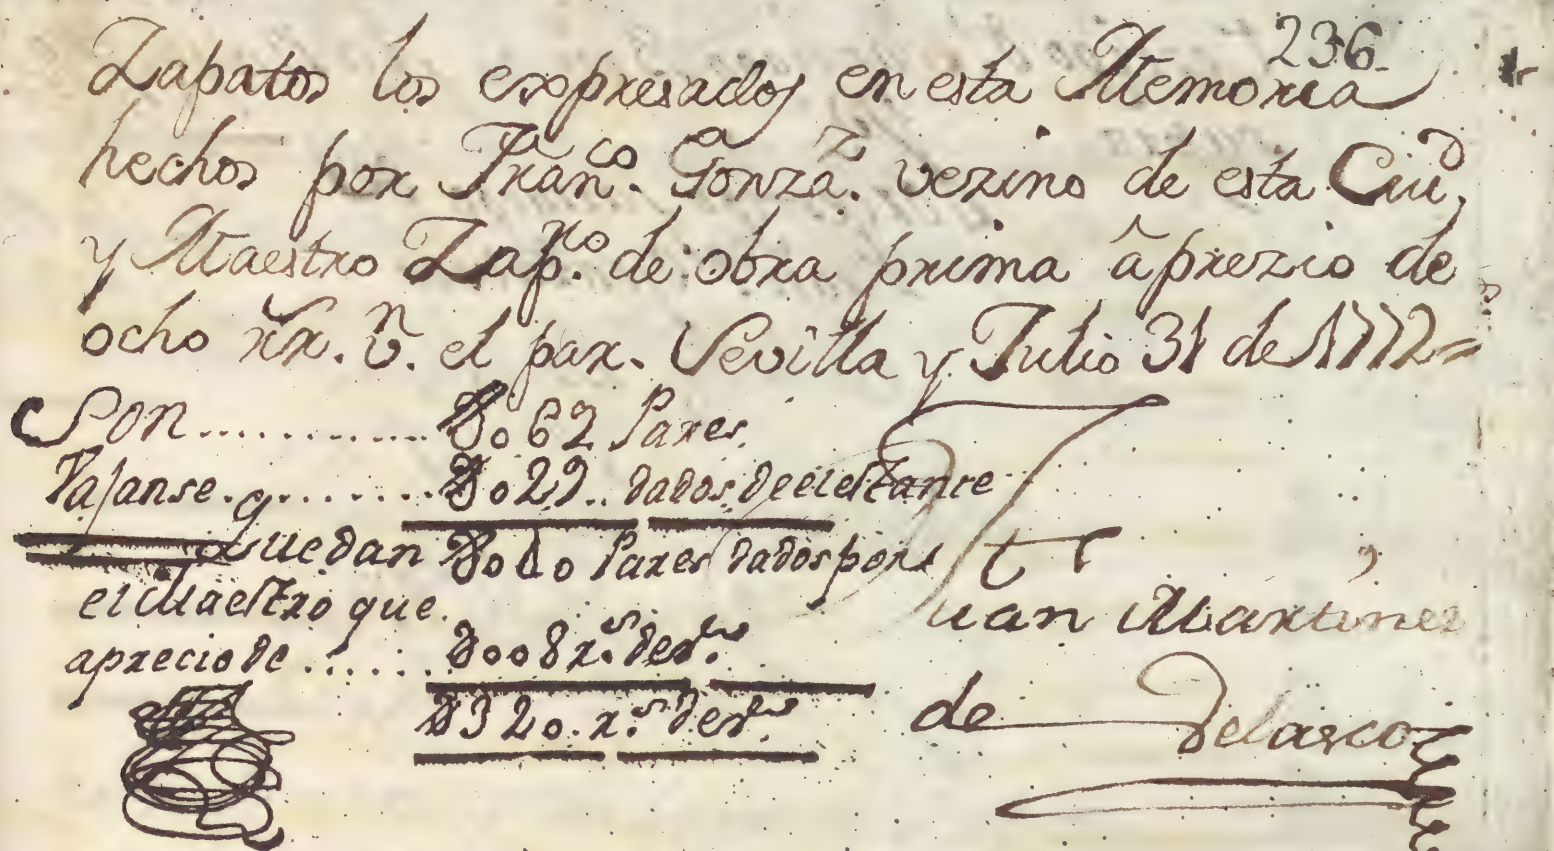 236
Zapatos los expresados en esta Memoria
hechos por Fran.co Gonza.z vezino de esta Ciu.d
y Maestro Zap.ro de obra prima â prezio de
ocho rr. v.n el par. Sevilla y Julio 31 de 1772=
Son............ U062 Pares.
Vajanse......... U022.. dados de el estante
quedan U040 Pares dados por
el Maestro que
aprecio de ...... U008 r.s de
U320. r.s de
Juan Martinez
de Velasco